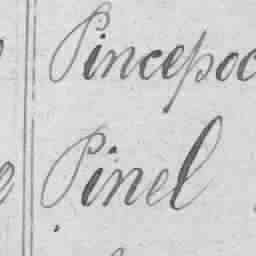 Pincepoc
Pinel